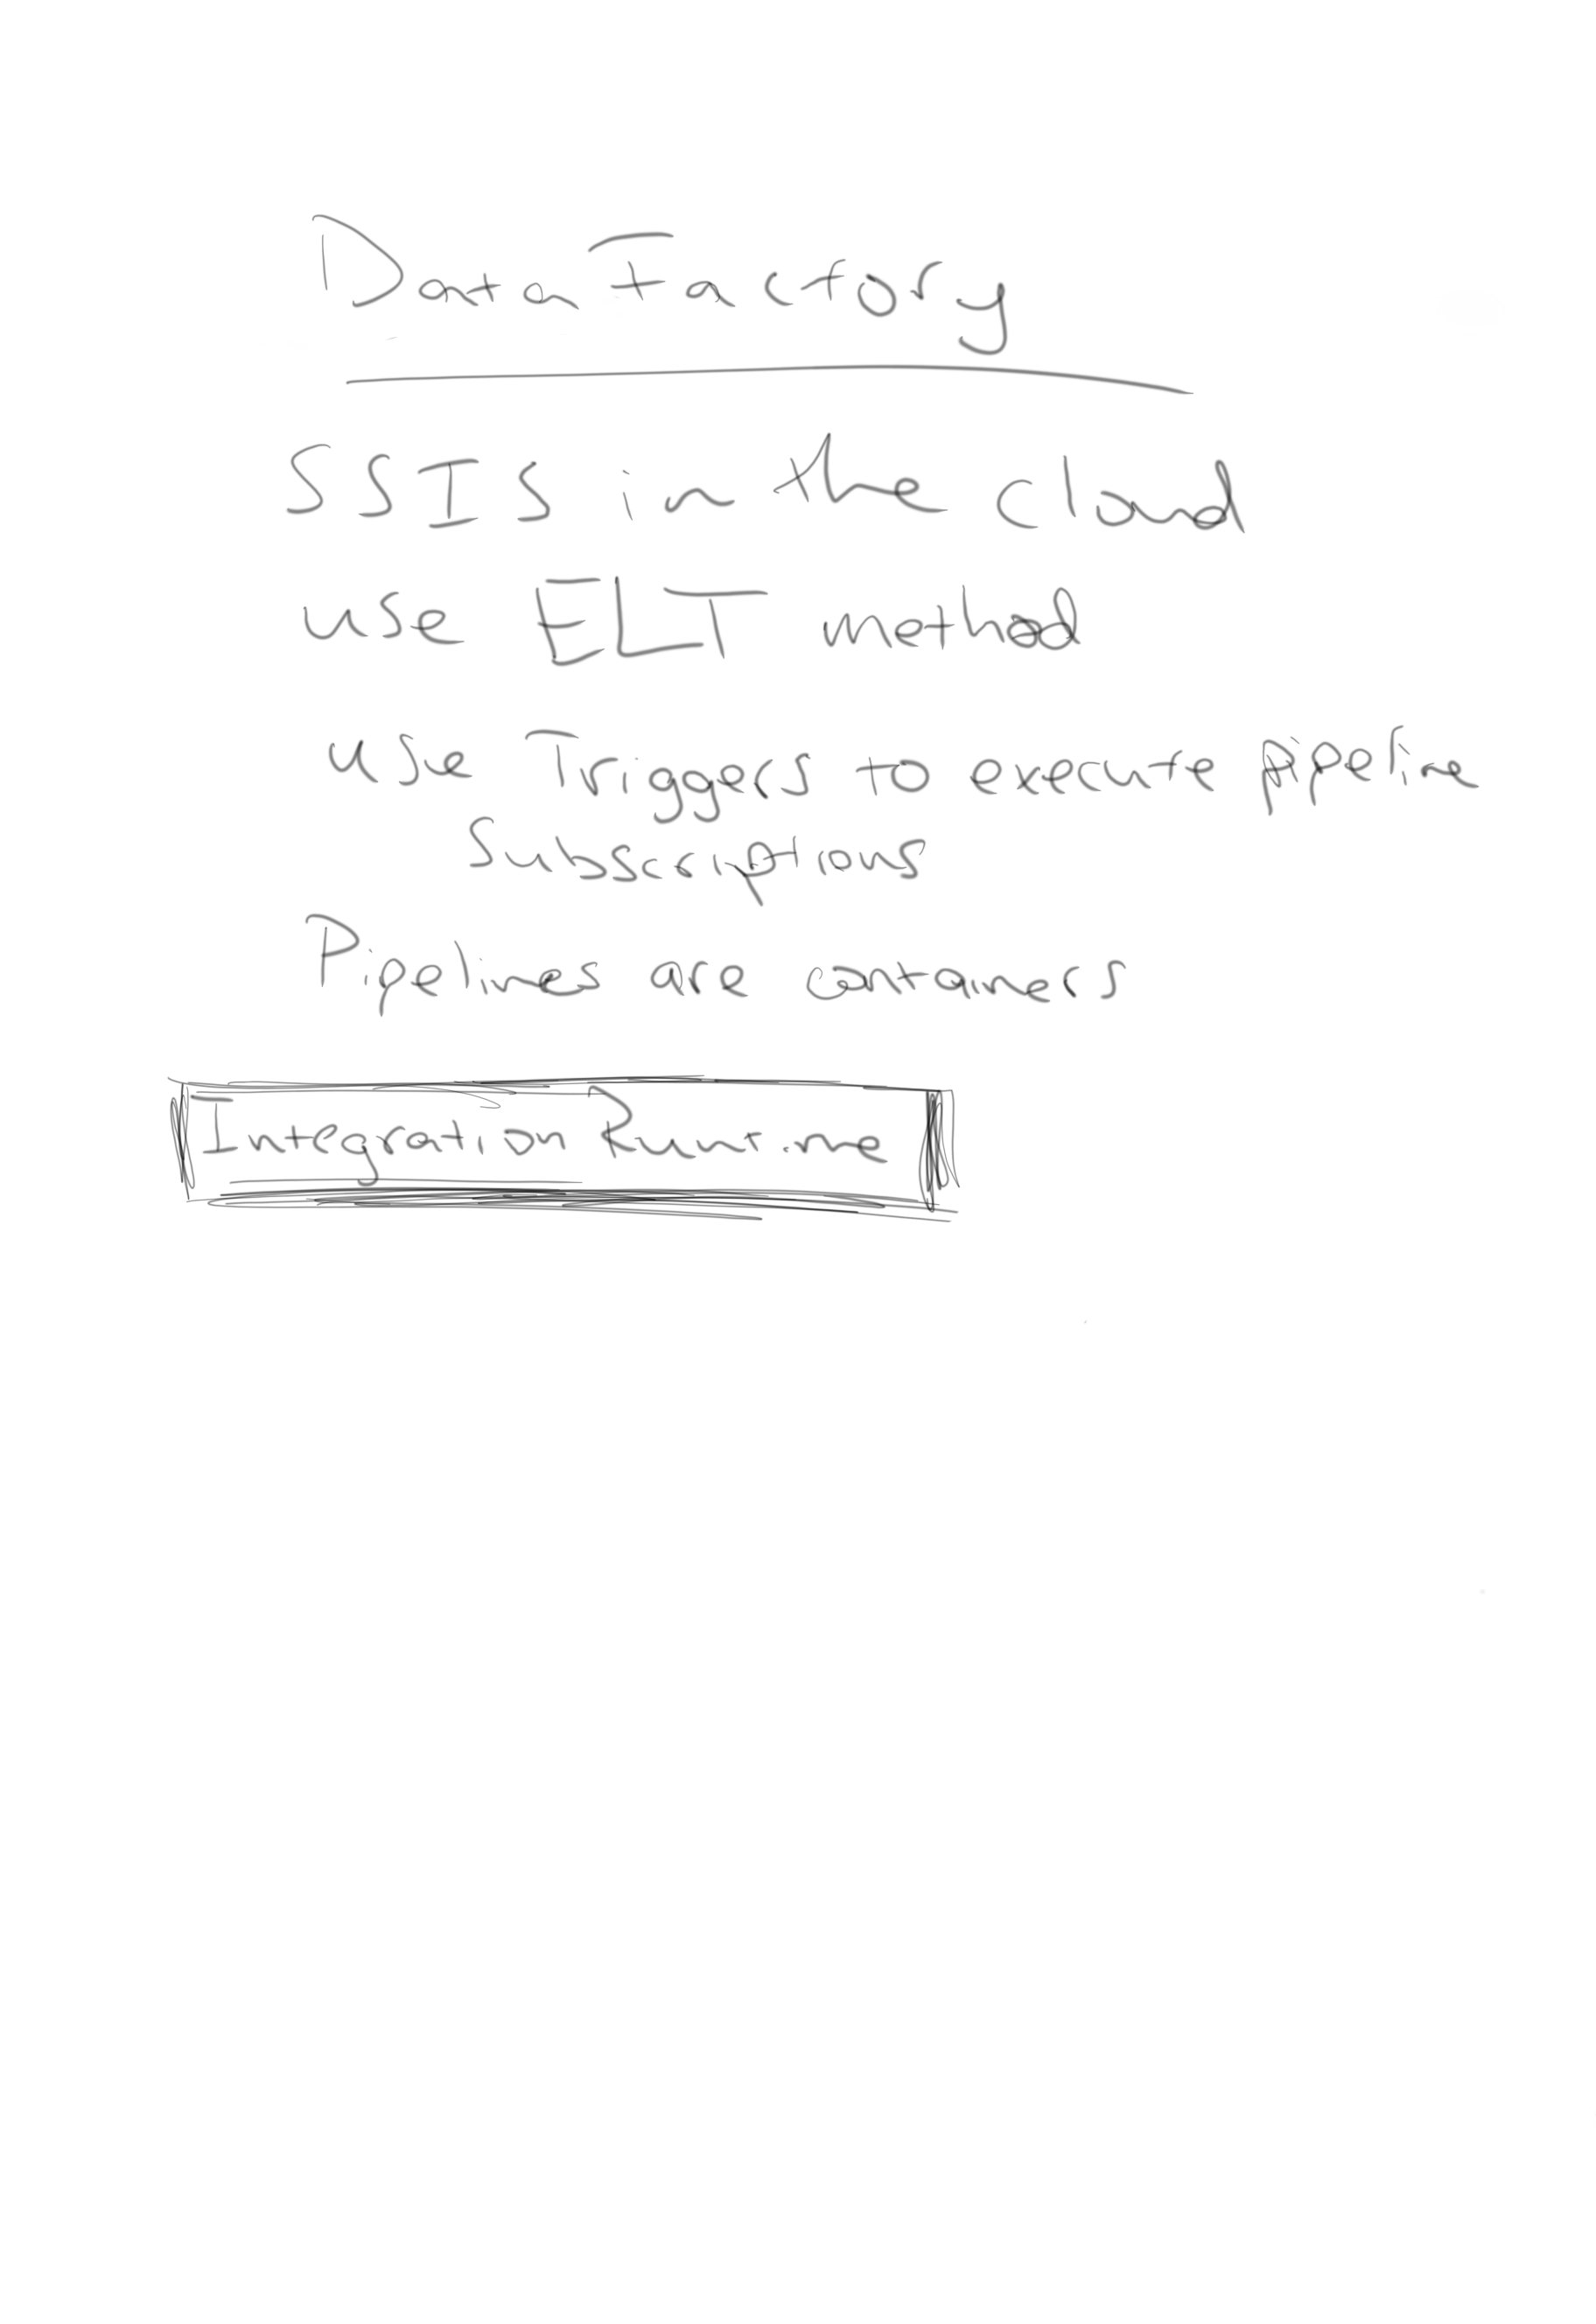 Data Factory
SSIS in the cloud
use ELT method
use Triggers to execute pipeline
Subscriptions
Pipelines are containers
Integration Runtime